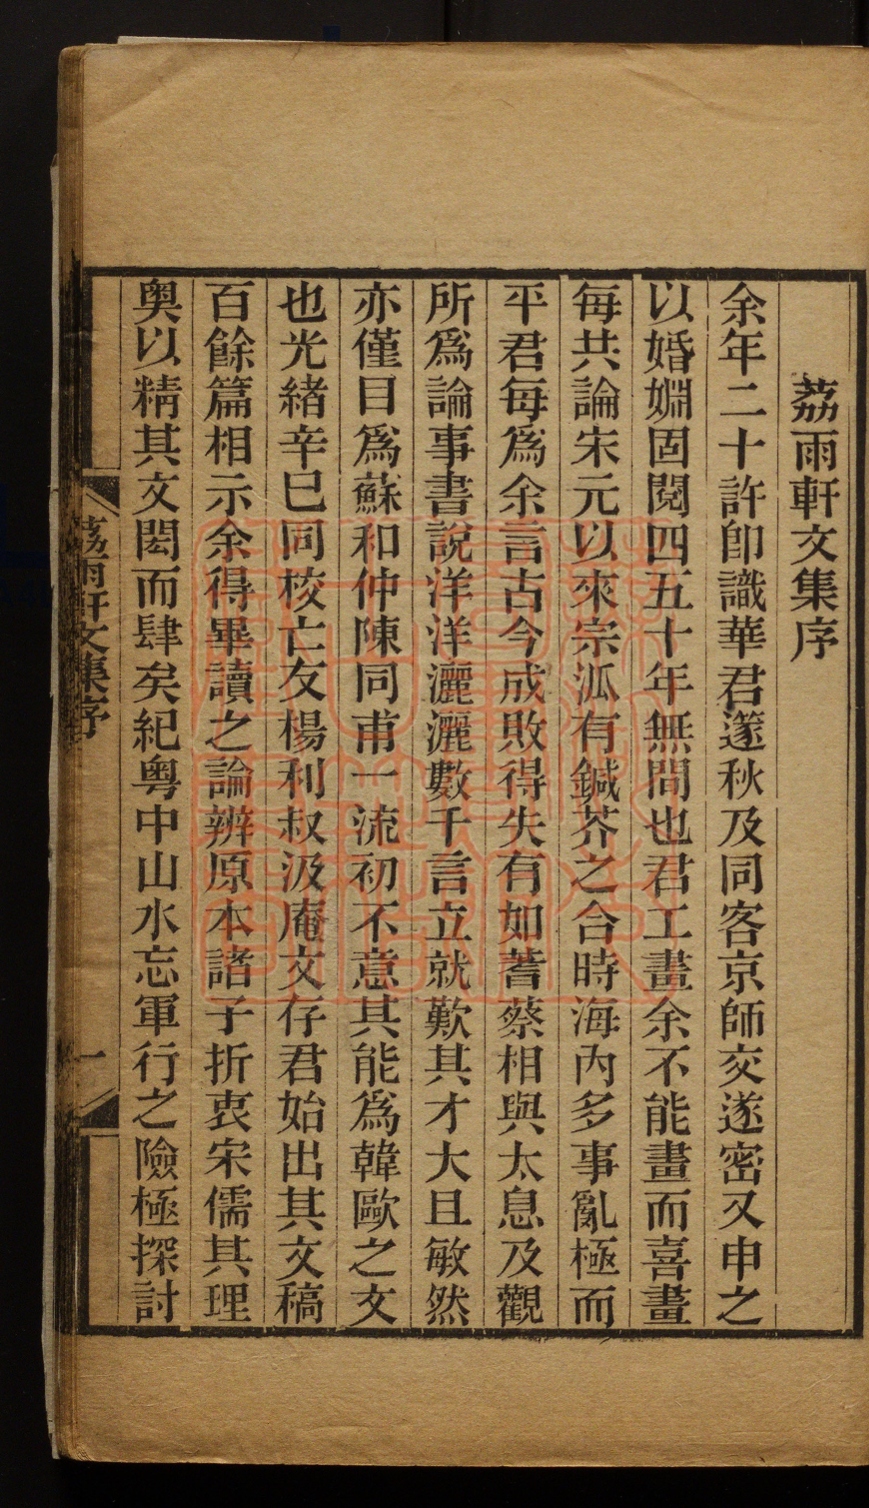 荔雨軒文集序
余年二十許卽識華君邃秋及同客京師交遂密又申之
以婚媩固閱四五十年無間也君工畫余不能畫而喜畫
每共論宋元以來宗泒有鍼芥之合時海內多事亂極而
平君每爲余言古今成敗得失有如蓍蔡相與太息及觀
所爲論事書說洋洋灑灑數千言立就歎其才大且敏然
亦僅目爲蘇和仲陳同甫一流初不意其能爲韓歐之文
也光緒辛巳同校亡友楊利叔汲庵文存君始出其文稿
百餘篇相示余得畢讀之論辨原本諸子折衷宋儒其理
奧以精其文閎而肆矣紀粤中山水忘軍行之險極探討
荔雨軒文集序
一